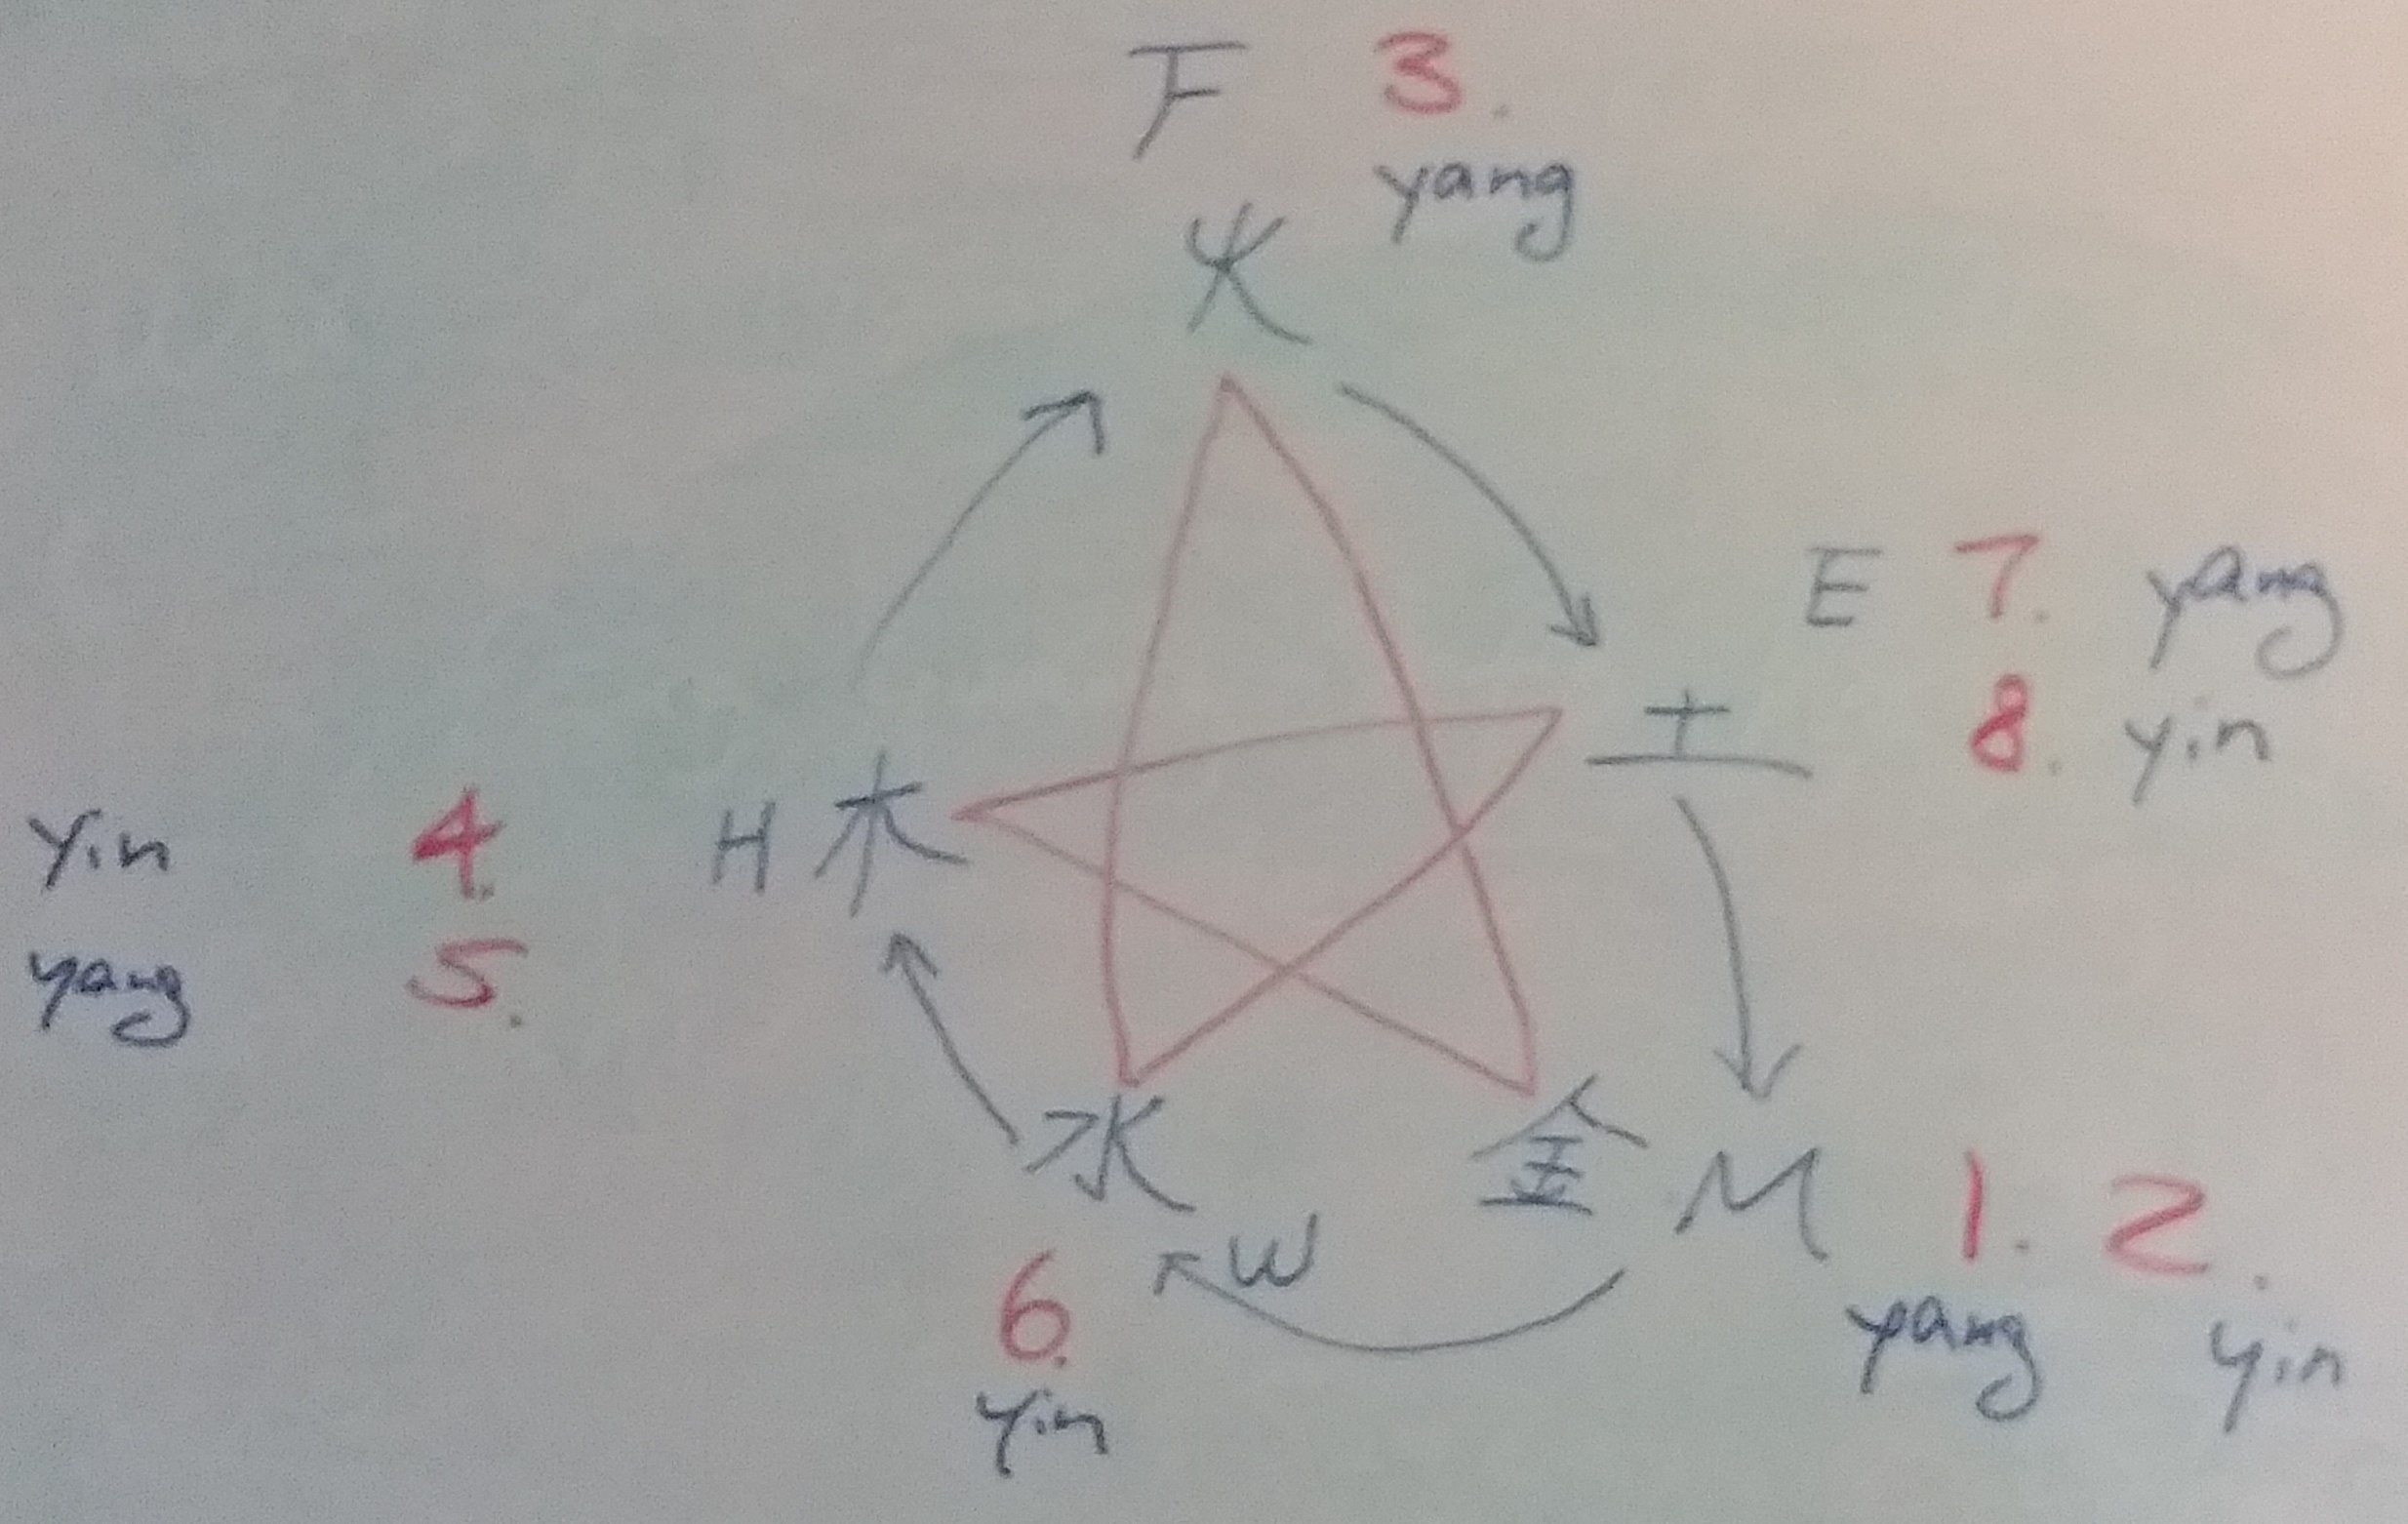 F 3.
yang
火
E 7. yang
土 8. yin
yin 4. H 木
yang 5.
水 金 M 1. 2.
W yang yin
6.
yin